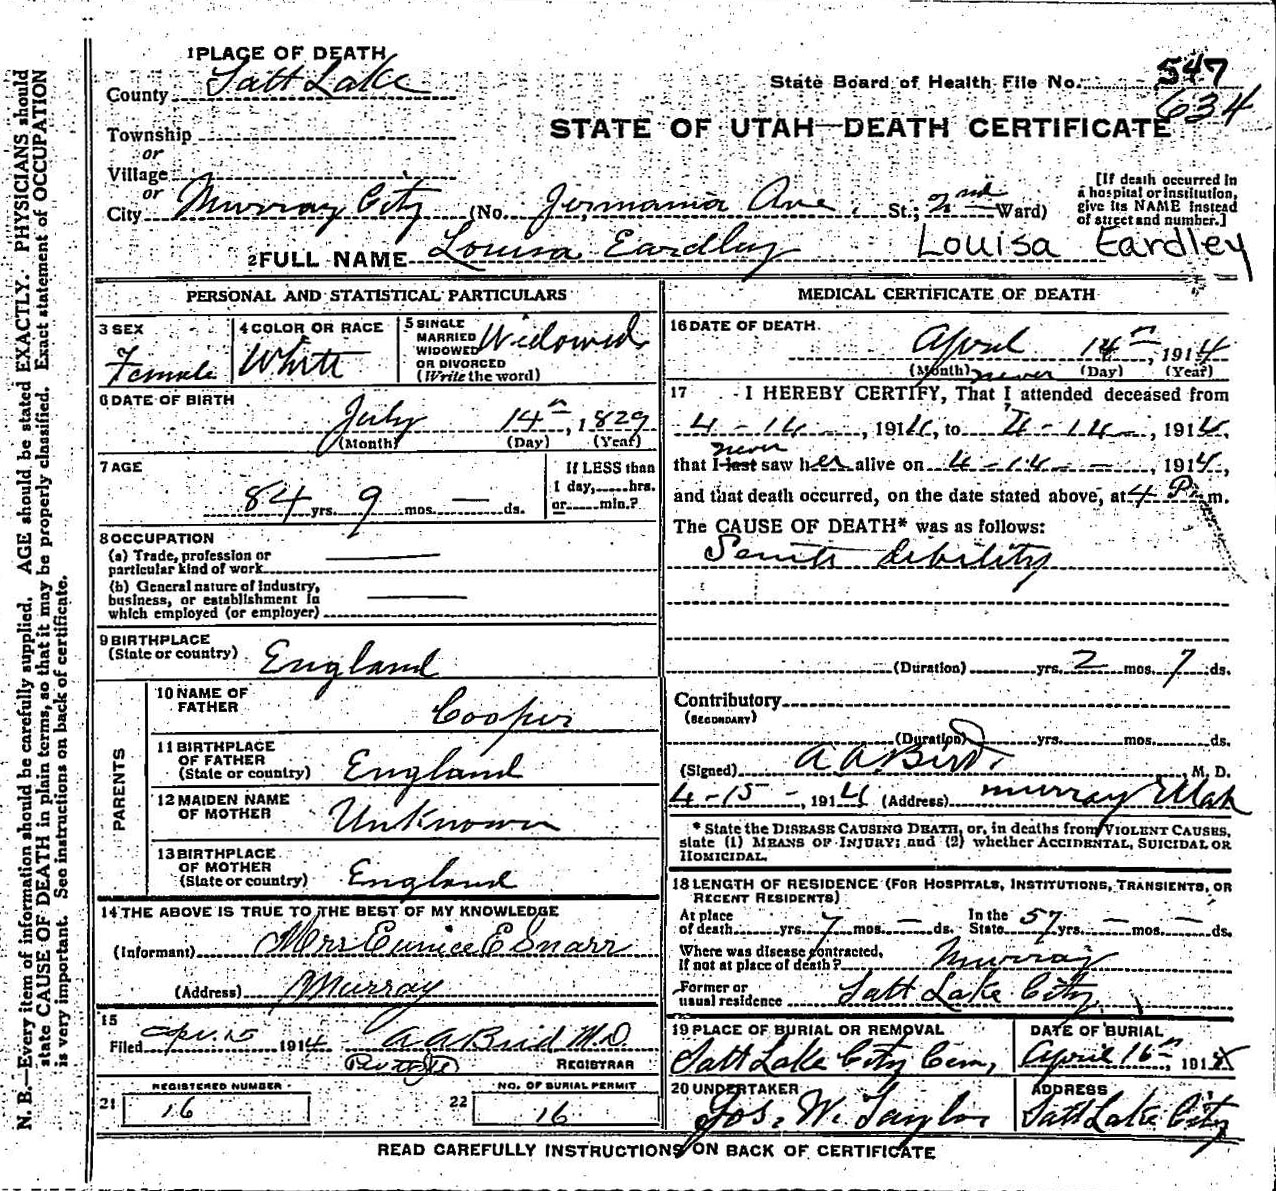 1 PLACE OF DEATH
County Salt Lake
State Board of Health File No. 547
634
Township
or
Village
or
STATE OF UTAH—DEATH CERTIFICATE
City Murray City (No. Jermania Ave, St.; 2nd Ward)
[If death occurred in
a hospital or institution,
give its NAME instead
of street and number.]
2 FULL NAME Louisa Eardley Louisa Eardley
PERSONAL AND STATISTICAL PARTICULARS
3 SEX
Female
4 COLOR OR RACE
White
5 SINGLE
MARRIED
WIDOWED
OR DIVORCED
(Write the word)
Widowed
6 DATE OF BIRTH
July 14th, 1829
(Month) (Day) (Year)
7 AGE
84 yrs. 9 mos. — ds.
If LESS than
1 day, hrs.
or min.?
8 OCCUPATION
(a) Trade, profession or
particular kind of work
(b) General nature of industry,
business, or establishment in
which employed (or employer)
9 BIRTHPLACE
(State or country) England
PARENTS
10 NAME OF
FATHER Cooper
11 BIRTHPLACE
OF FATHER
(State or country) England
12 MAIDEN NAME
OF MOTHER Unknown
13 BIRTHPLACE
OF MOTHER
(State or country) England
14 THE ABOVE IS TRUE TO THE BEST OF MY KNOWLEDGE
(Informant) Mrs Eunice E Snarr
(Address) Murray
15
Filed Apr. 15 1914 A A Bird M.D.
REGISTRAR
REGISTERED NUMBER
21 16
NO. OF BURIAL PERMIT
22 16
MEDICAL CERTIFICATE OF DEATH
16 DATE OF DEATH
April 14th, 1914
(Month) (Day) (Year)
never
17 I HEREBY CERTIFY, That I attended deceased from
4-14-, 1914, to 4-14-, 1914,
never
that I last saw her alive on 4-14-, 1914,
and that death occurred, on the date stated above, at 4 P. m.
The CAUSE OF DEATH* was as follows:
Senile debility
(Duration) yrs. 2 mos. 7 ds.
Contributory
(SECONDARY)
(Duration) yrs. mos. ds.
(Signed) A A. Bird, M. D.
4-15-, 1914 (Address) Murray Utah
* State the DISEASE CAUSING DEATH, or, in deaths from VIOLENT CAUSES,
state (1) MEANS OF INJURY; and (2) whether ACCIDENTAL, SUICIDAL OR
HOMICIDAL.
18 LENGTH OF RESIDENCE (FOR HOSPITALS, INSTITUTIONS, TRANSIENTS, OR
RECENT RESIDENTS)
At place
of death yrs. 7 mos. — ds. In the
State 57 yrs. — mos. — ds.
Where was disease contracted,
if not at place of death? Murray
Former or
usual residence Salt Lake City
19 PLACE OF BURIAL OR REMOVAL
Salt Lake City Cem,
DATE OF BURIAL
April 16th, 1914
20 UNDERTAKER
Jos. W. Taylor
ADDRESS
Salt Lake City
READ CAREFULLY INSTRUCTIONS ON BACK OF CERTIFICATE
N. B.—Every item of information should be carefully supplied. AGE should be stated EXACTLY. PHYSICIANS should
state CAUSE OF DEATH in plain terms, so that it may be properly classified. Exact statement of OCCUPATION
is very important. See instructions on back of certificate.